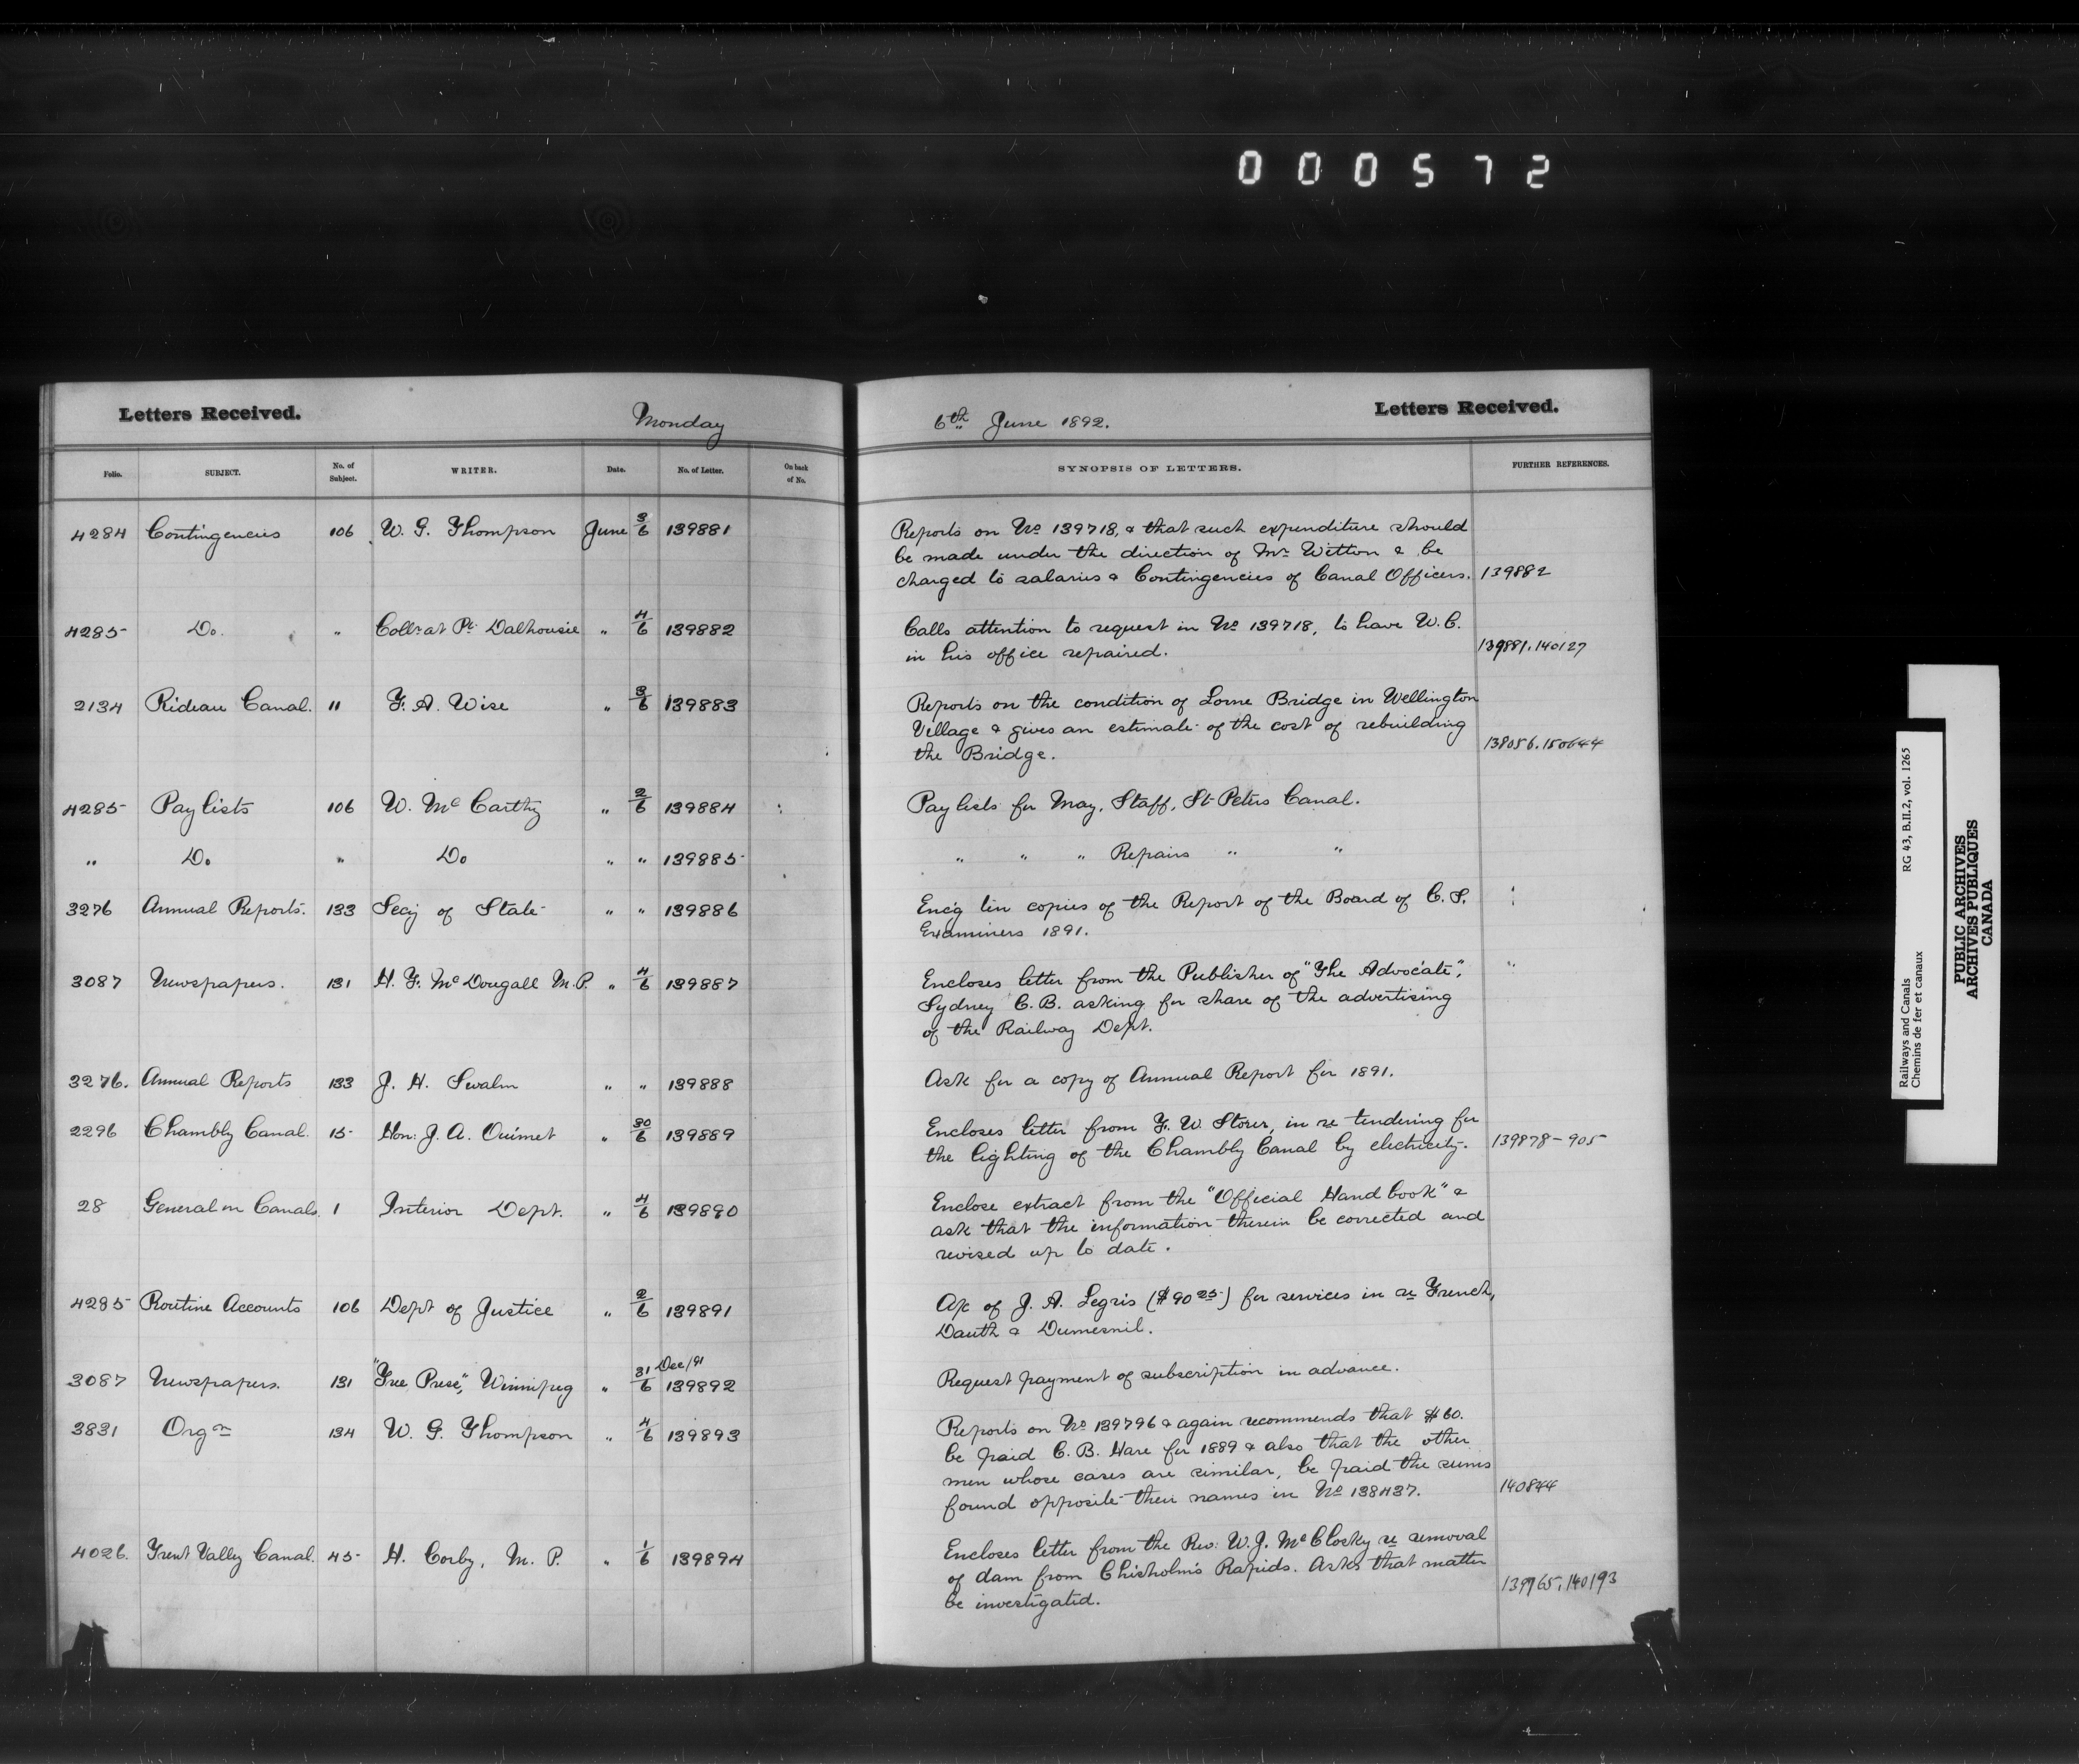 000572
Letters Received. Monday
6th June 1892. Letters Received.
Folio. SUBJECT. No. of Subject. WRITER. Date. No. of Letter. On back of No. SYNOPSIS OF LETTERS. FURTHER REFERENCES.
4284 Contingencies 106 W. G. Thompson June 3/6 139881 Reports on No 139718, & that such expenditure should
be made under the direction of Mr Witton & be
charged to salaries & Contingencies of Canal Officers. 139882
4285 Do. " Collr at Pt Dalhousie " 4/6 139882 Calls attention to request in No 139718, to have W.C.
in his office repaired. 139881.140127
2134 Rideau Canal. 11 F. A. Wise " 3/6 139883 Reports on the condition of Lorne Bridge in Wellington
Village & gives an estimate of the cost of rebuilding
the Bridge. 138056.150644
4285 Pay lists 106 W. McCarthy " 2/6 139884 Pay lists for May, Staff, St Peters Canal.
" Do " Do " " 139885 " " " Repairs " "
3276 Annual Reports. 133 Secy of State " " 139886 Enc'g ten copies of the Report of the Board of C. S.
Examiners 1891.
3087 Newspapers. 131 H. F. McDougall M.P. " 4/6 139887 Encloses letter from the Publisher of "The Advocate",
Sydney C. B. asking for share of the advertising
of the Railway Dept.
3276. Annual Reports 133 J. H. Swalm " " 139888 Ask for a copy of Annual Report for 1891.
2296 Chambly Canal. 15 Hon: J. A. Ouimet " 30/6 139889 Encloses letter from F. W. Storer, in re tendering for
the lighting of the Chambly Canal by electricity. 139878-905
28 General on Canals. 1 Interior Dept. " 4/6 139890 Enclose extract from the "Official Hand book" &
ask that the information therein be corrected and
revised up to date.
4285 Routine Accounts 106 Dept of Justice " 2/6 139891 A/c of J. A. Legris ($90 25) for services in re French,
Dauth & Dumesnil.
3087 Newspapers. 131 "Free Press", Winnipeg " 31/6 Dec/91 139892 Request payment of subscription in advance.
3831 Orgn 134 W. G. Thompson " 4/6 139893 Reports on No 139796 & again recommends that $60.
be paid C. B. Hare for 1889 & also that the other
men whose cases are similar, be paid the sums
found opposite their names in No 138437. 140844
4026. Trent Valley Canal. 45 H. Corby, M. P. " 1/6 139894 Encloses letter from the Rev: W. J. McClosky re removal
of dam from Chisholm's Rapids. Asks that matter
be investigated. 139965.140193
Railways and Canals RG 43, B.II.2, vol. 1265
Chemins de fer et canaux
PUBLIC ARCHIVES
ARCHIVES PUBLIQUES
CANADA